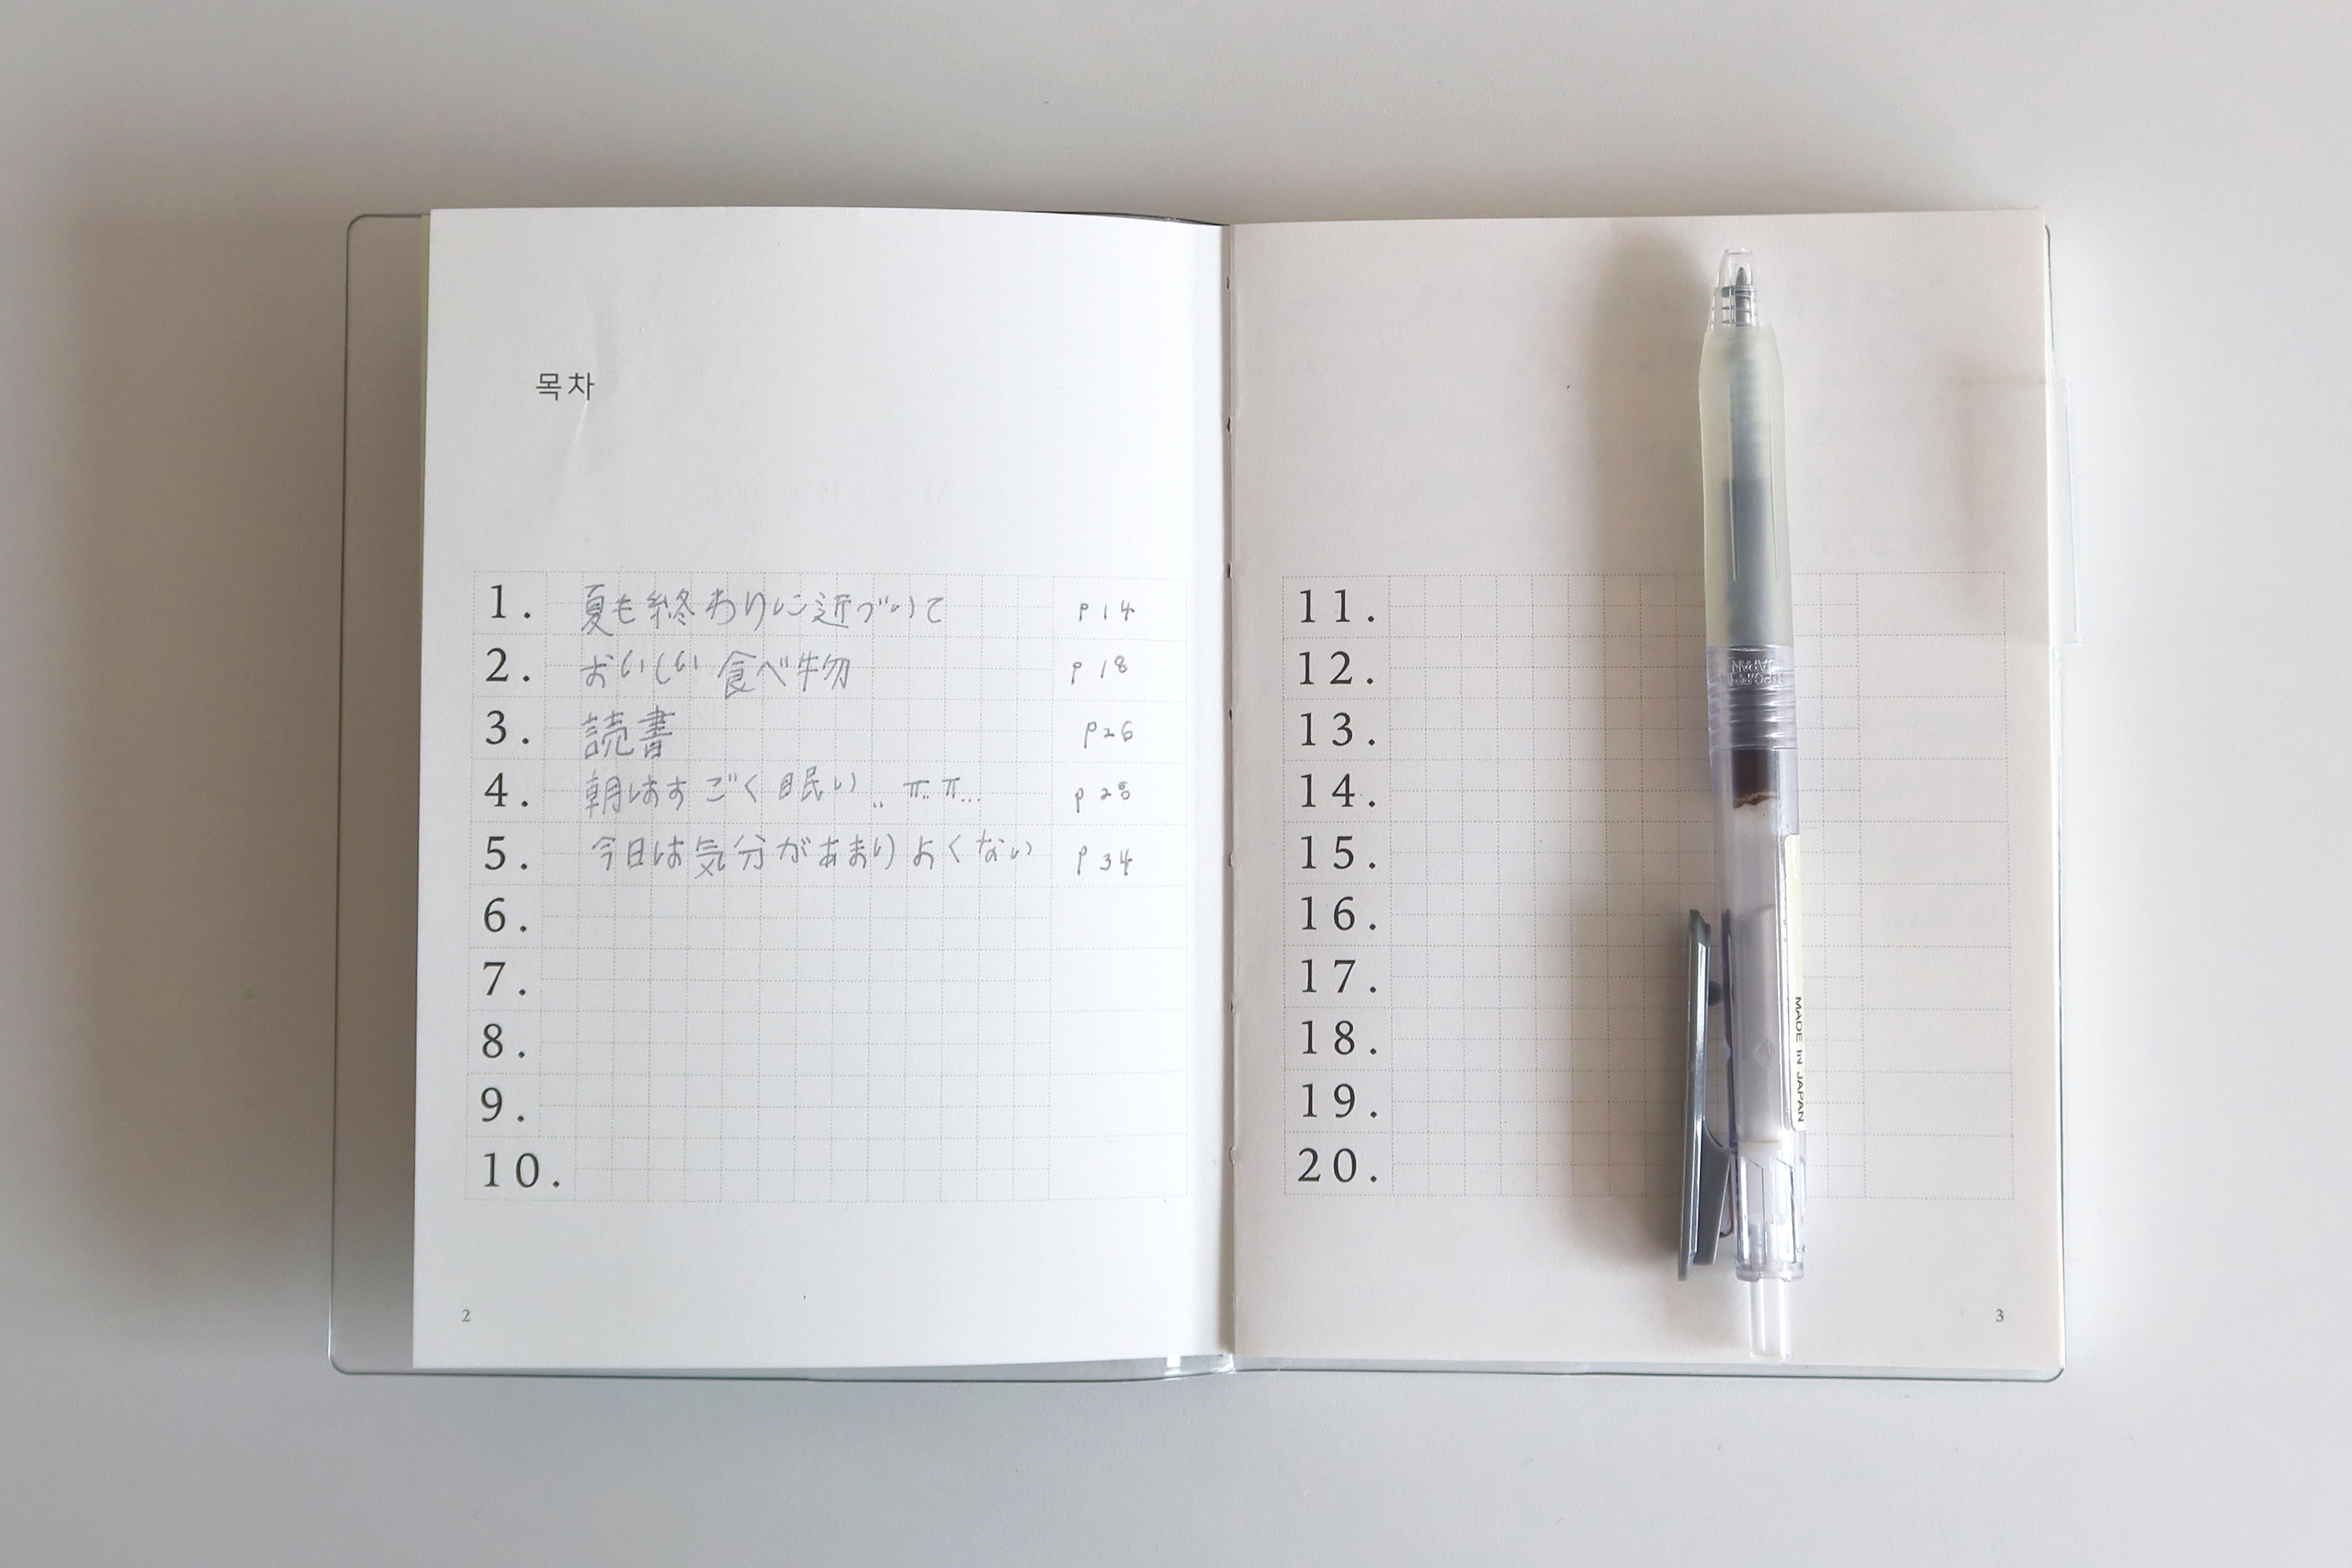 목차
1. 夏も終わりに近づいて p14
2. おいしい食べ物 p18
3. 読書 p26
4. 朝はすごく眠い.. ㅠ.ㅠ...
5. 今日は気分があまりよくない p34
6.
7.
8.
9.
10.
2
11.
12.
13.
14.
15.
16.
17.
18.
19.
20.
3
JAPAN
MADE IN JAPAN